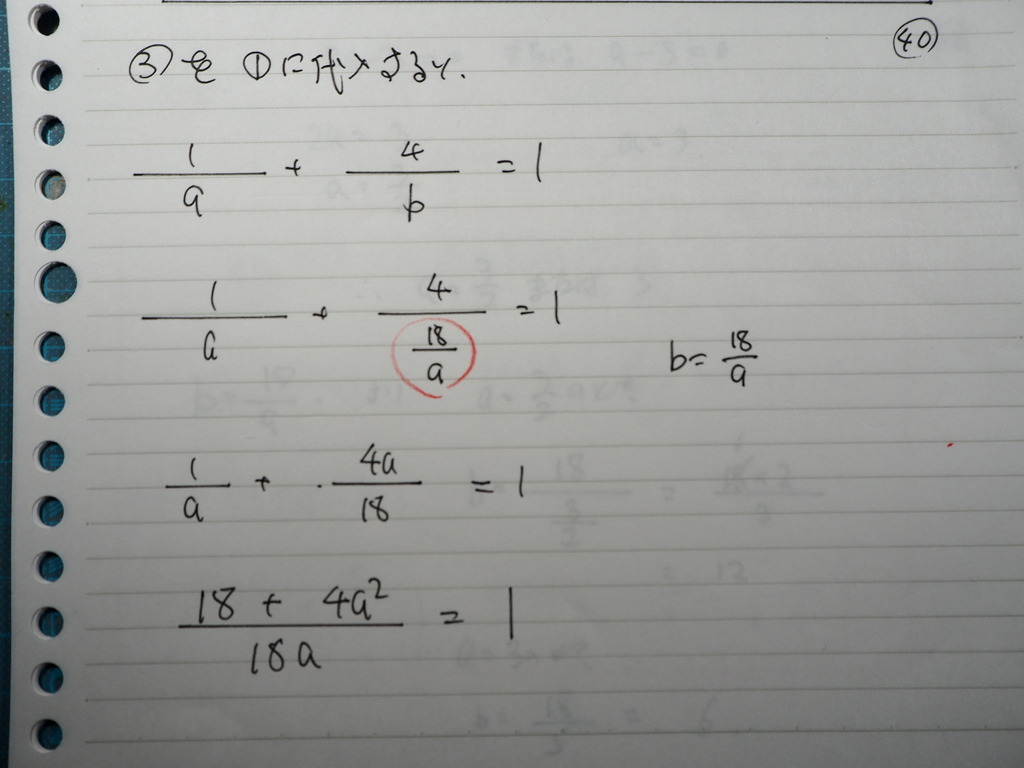 ㊵
③を①に代入すると.
1/a + 4/b = 1
1/a + 4/(18/a) = 1    b = 18/a
1/a + 4a/18 = 1
(18 + 4a²)/18a = 1